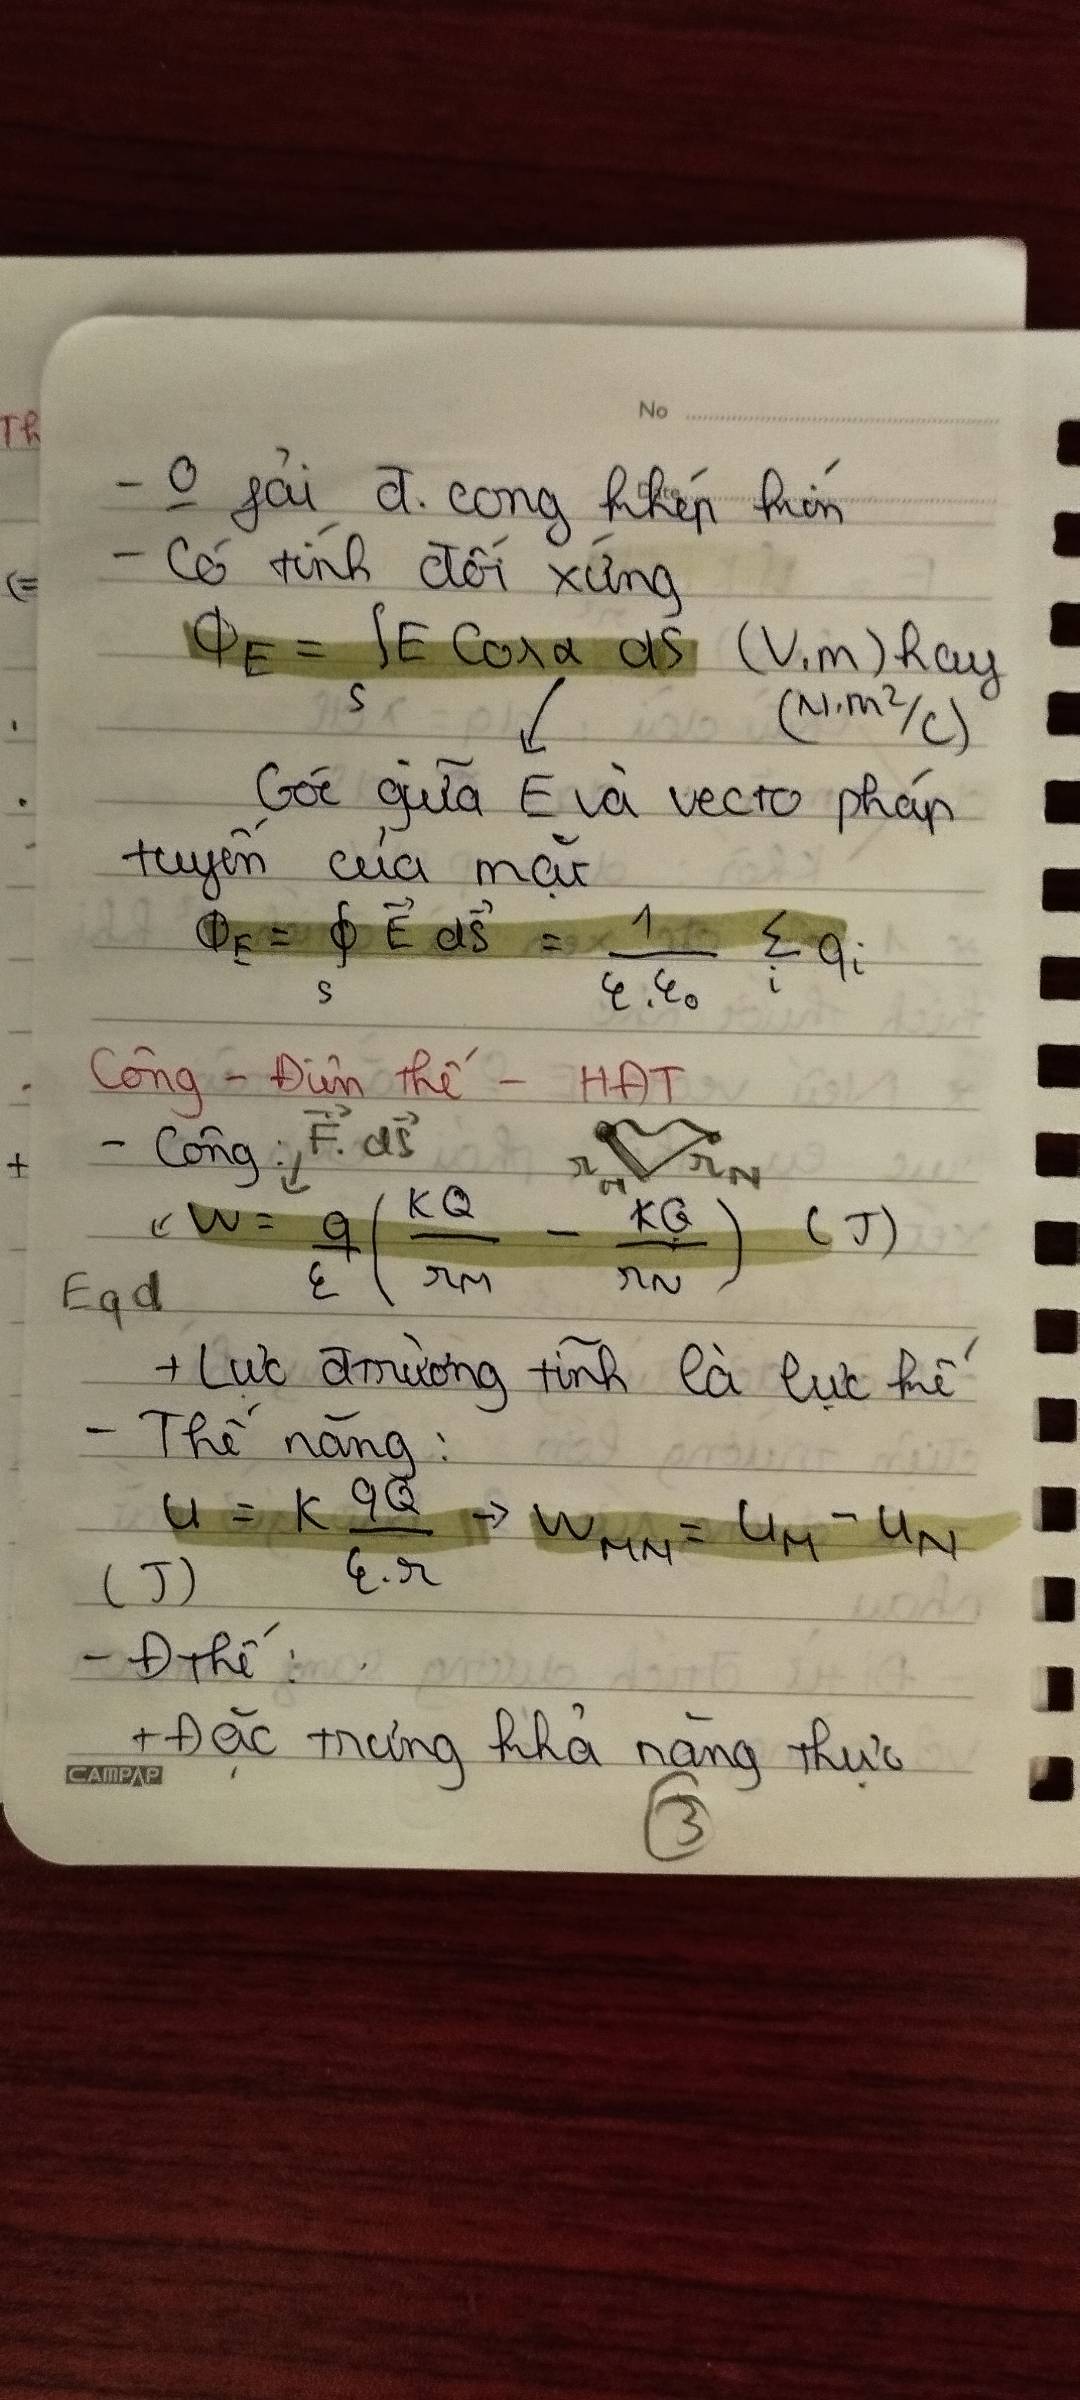 No
Date
- O̲ fải đ. cong khép kín
- Có tính đối xứng
Φ_E = ∫_S E Cosα dS (V.m) hay
(N.m²/C)
Góc giữa E và vecto pháp
tuyến của mặt
Φ_E = ∮_S E⃗ dS⃗ = 1/(ε.ε₀) Σ_i q_i
Công - Điện thế - HĐT
- Công: F⃗. dS⃗
r_M r_N
↙ W = q/ε (KQ/r_M - KQ/r_N) (J)
Eqd
+ Lực đtrường tĩnh là lực thế
- Thế năng:
U = K qQ/(ε.r) → W_MN = U_M - U_N
(J)
- Đthế:
+ Đặc trưng khả năng thực
CAMPAP
3
Th
(=
+